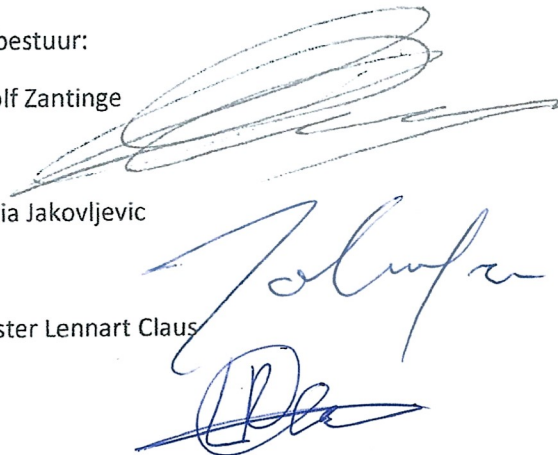 bestuur:
lf Zantinge
ia Jakovljevic
ster Lennart Claus